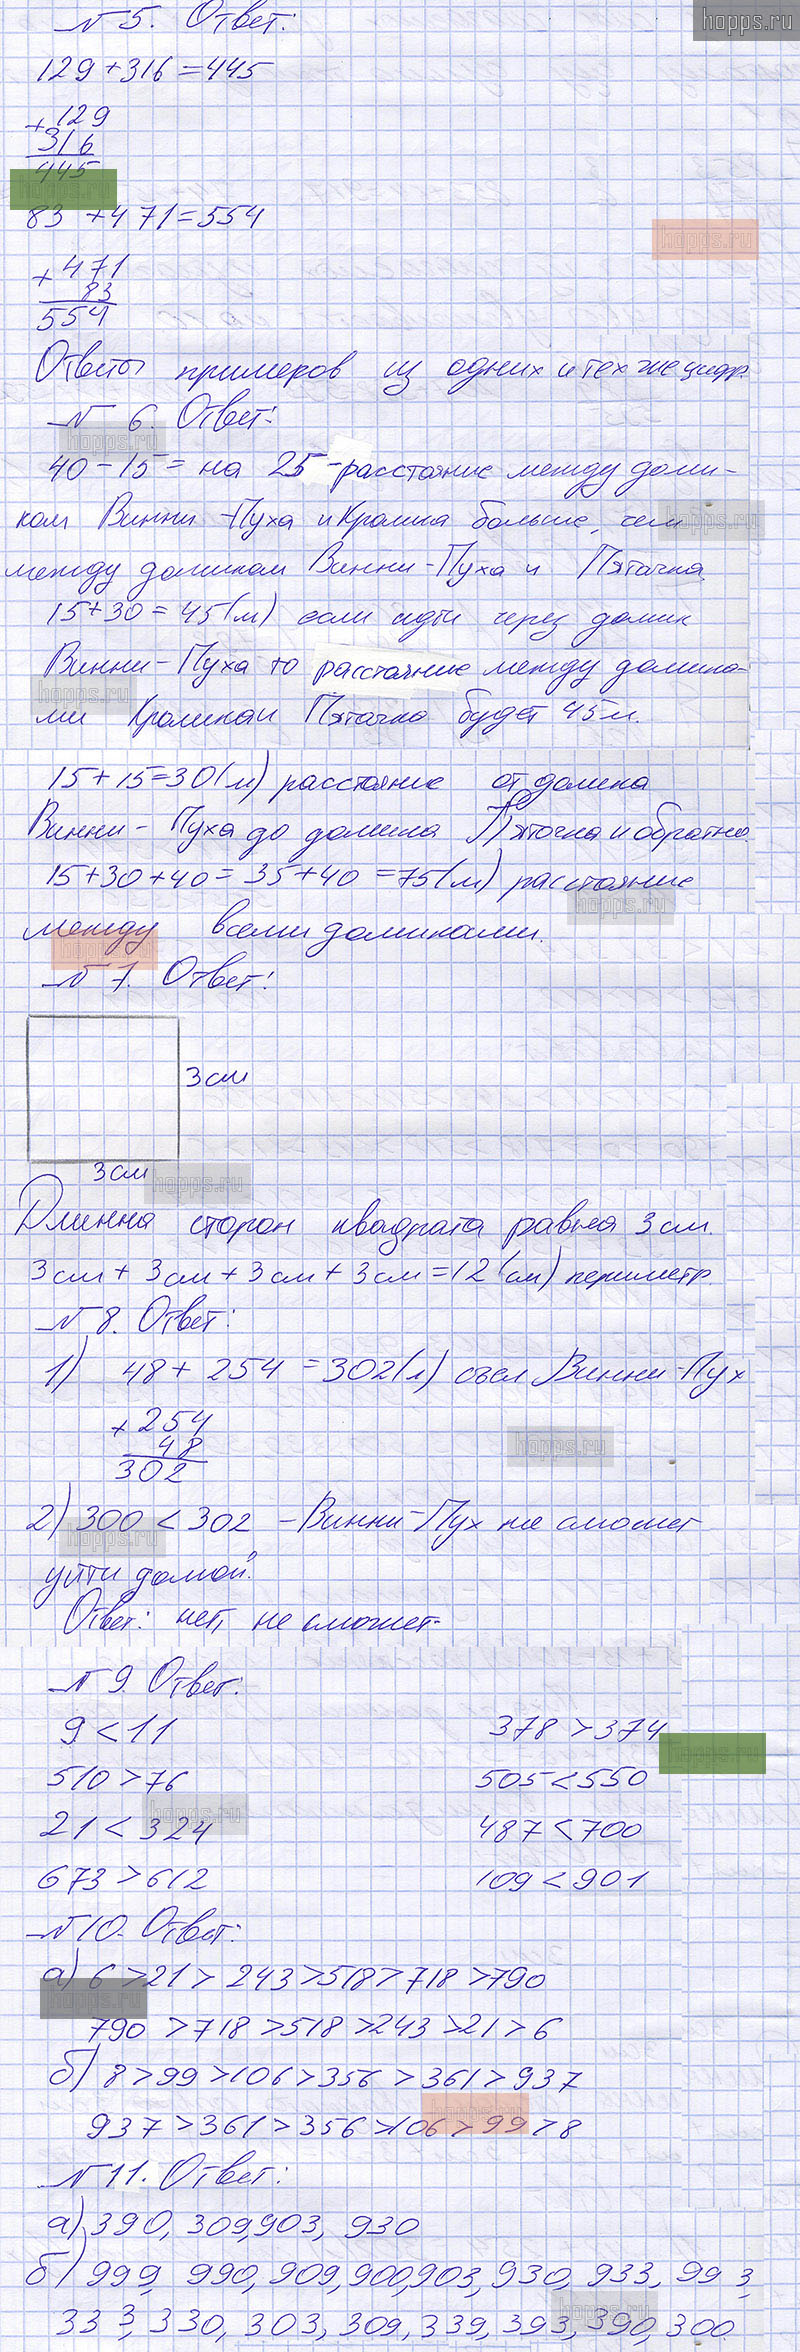 hopps.ru
№ 5. Ответ:
129+316=445
+129
316
445
hopps.ru
83 +471=554
hopps.ru
+471
83
554
Ответы примеров из одних и тех же цифр.
№ 6. Ответ:
hopps.ru
40-15= на 25-расстояние между доми-
ком Винни-Пуха и Кролика больше, чем
hopps.ru
между домиком Винни-Пуха и Пятачка
15+30=45(м) если идти через домик
Винни-Пуха то расстояние между домика-
hopps.ru
ми Кролика и Пятачка будет 45м.
15+15=30(м) расстояние от домика
Винни-Пуха до домика Пяточка и обратно.
15+30+40=35+40=75(м) расстояние
hopps.ru
между всеми домиками.
hopps.ru
№ 7. Ответ:
3см
3см
hopps.ru
Длинна сторон квадрата равна 3см.
3см+3см+3см+3см=12(см) периметр
№ 8. Ответ:
1) 48+254=302(л) съел Винни-Пух
+254
48
302
hopps.ru
2) 300<302 -Винни-Пух не сможет
hopps.ru
уйти домой.
Ответ: нет, не сможет.
№ 9. Ответ:
9<11 378>374
hopps.ru
510>76 505<550
hopps.ru
21<324 487<700
673>612 109<901
№10. Ответ:
а) 6>21>243>518>718>790
hopps.ru
790>718>518>243>21>6
б) 8>99>106>356>361>937
hopps.ru
937>361>356>106>99>8
№11. Ответ:
а) 390, 309, 903, 930
б) 999, 990, 909, 900, 903, 930, 933, 993,
hopps.ru
333, 330, 303, 309, 339, 393, 390, 300